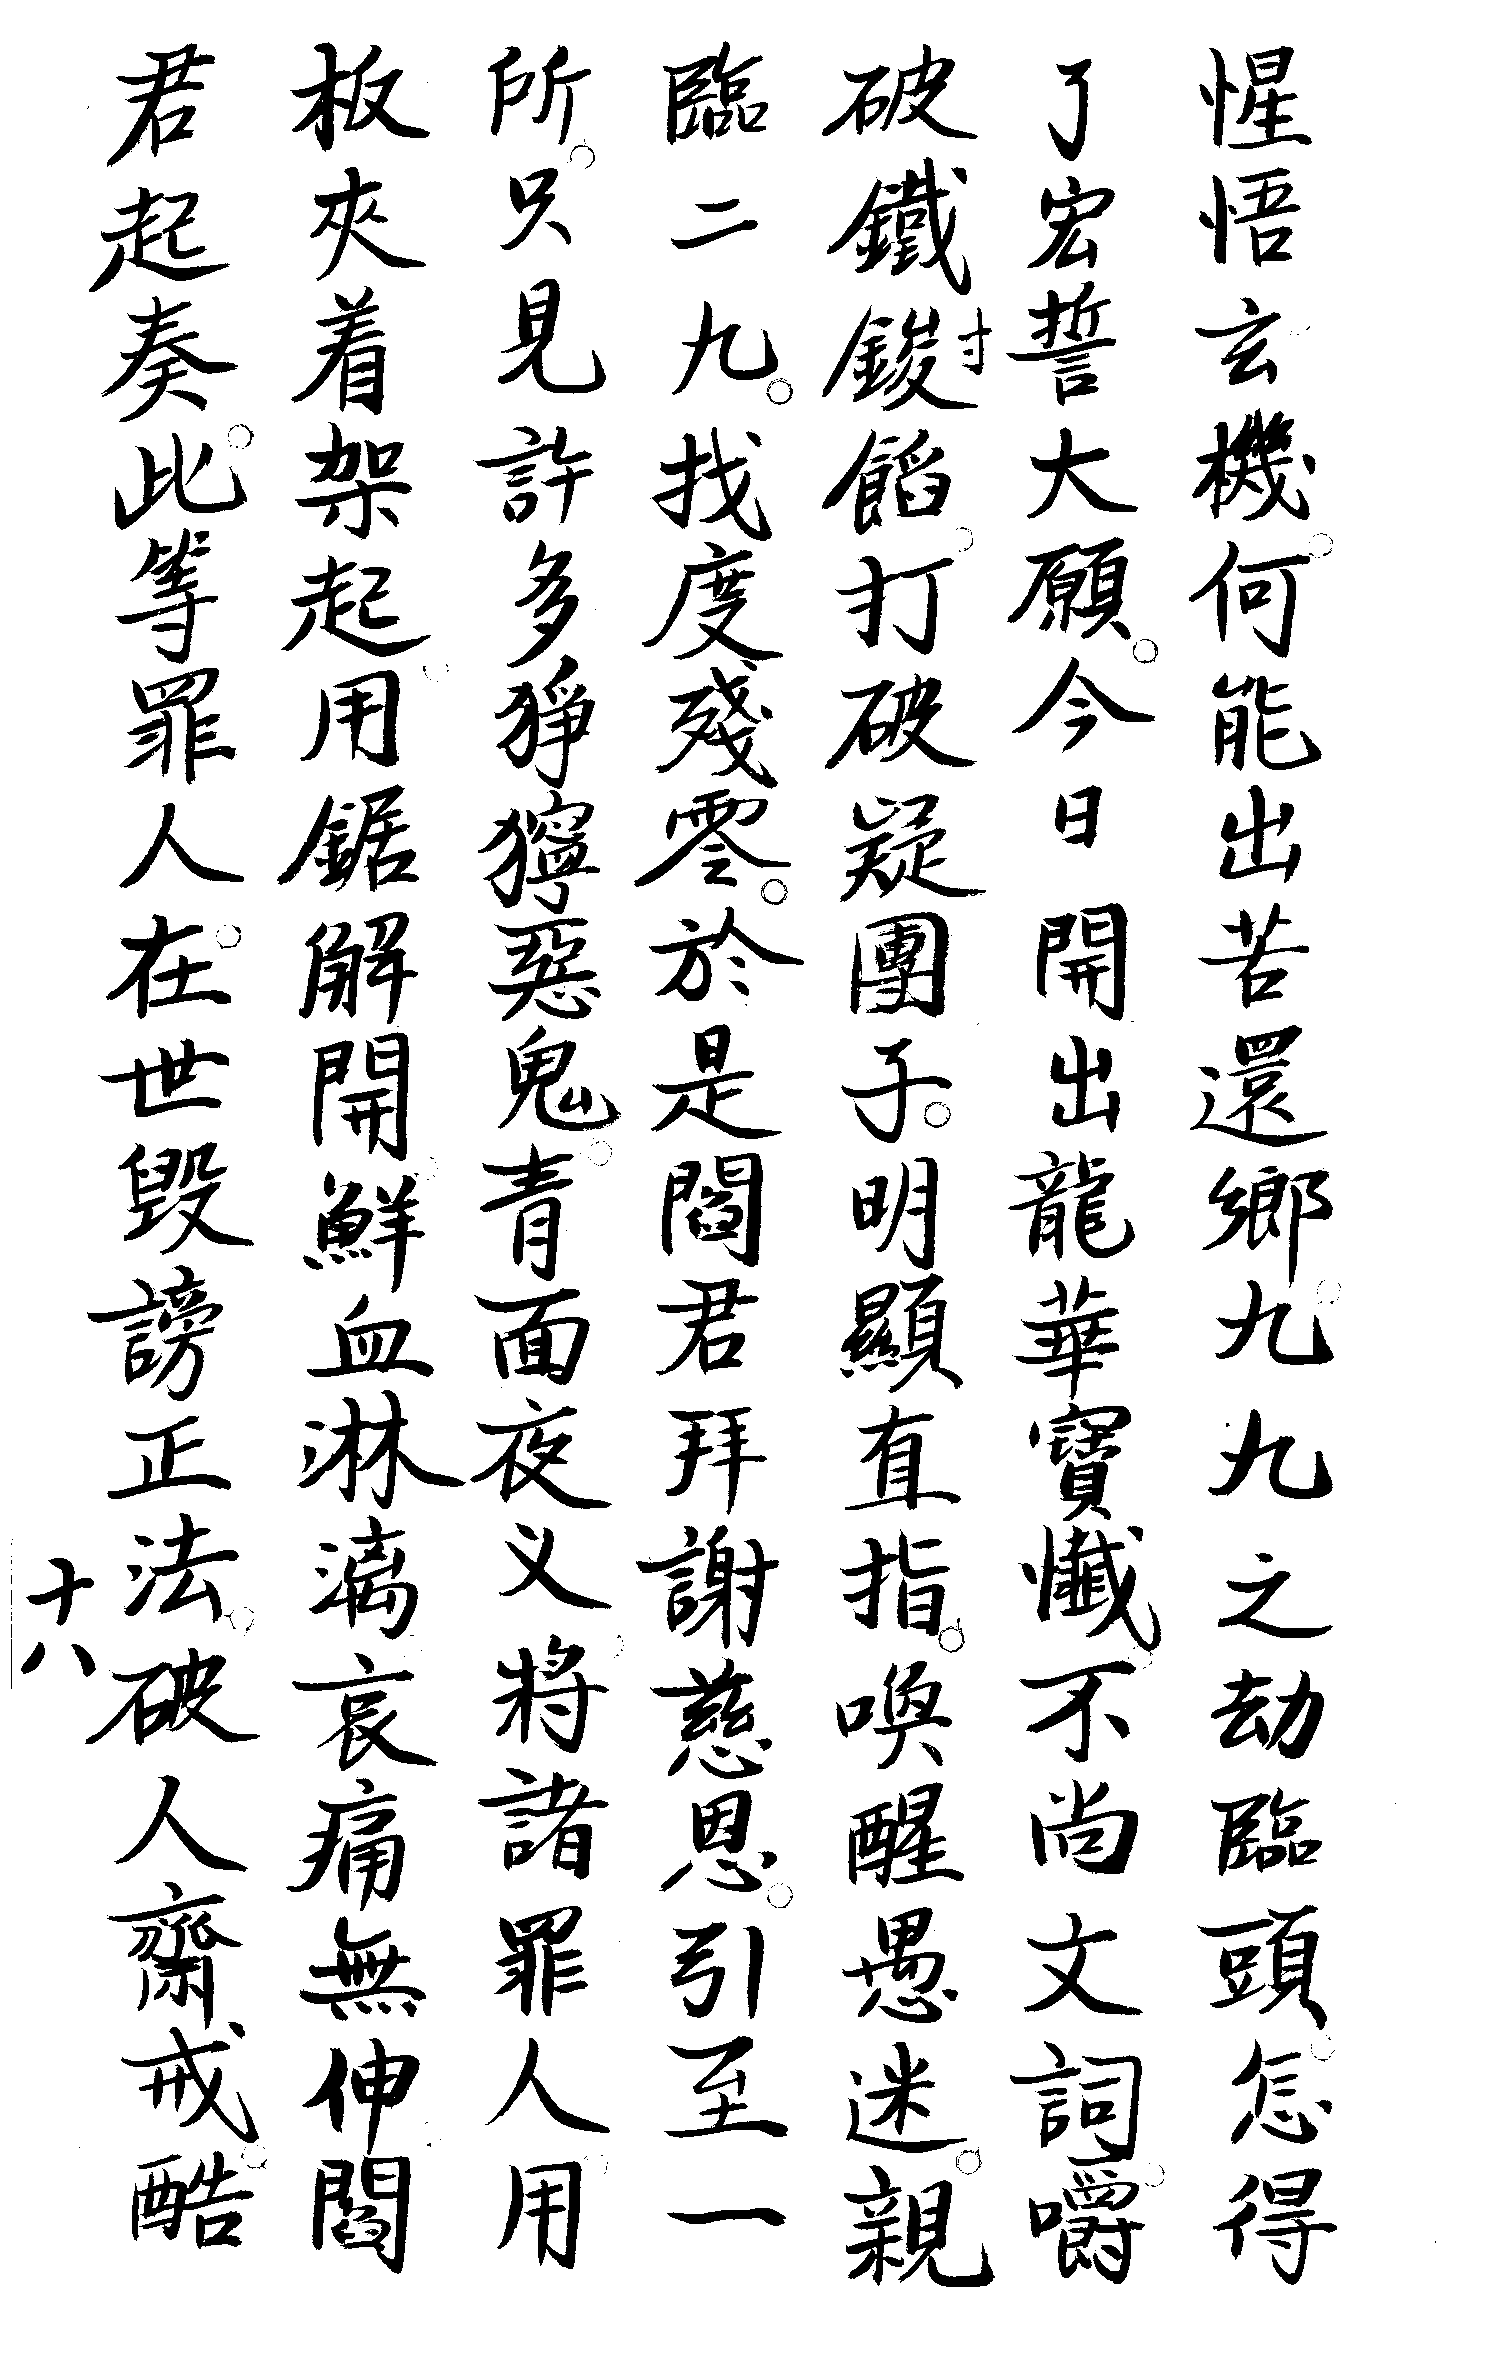 惺悟玄機。何能出苦還鄉。九九之劫臨頭。怎得
了宏誓大願。今日開出龍華寶懺。不尚文詞。嚼
破鐵鋑餡。打破疑團子。明顯直指。喚醒愚迷。親
臨二九。找度殘零。於是閻君拜謝慈恩。引至一
所。只見許多猙獰惡鬼。青面夜义。將諸罪人。用
板夾着架起。用鋸解開。鮮血淋漓。哀痛無伸。閻
君起奏。此等罪人。在世毀謗正法。破人齋戒。酷
十八